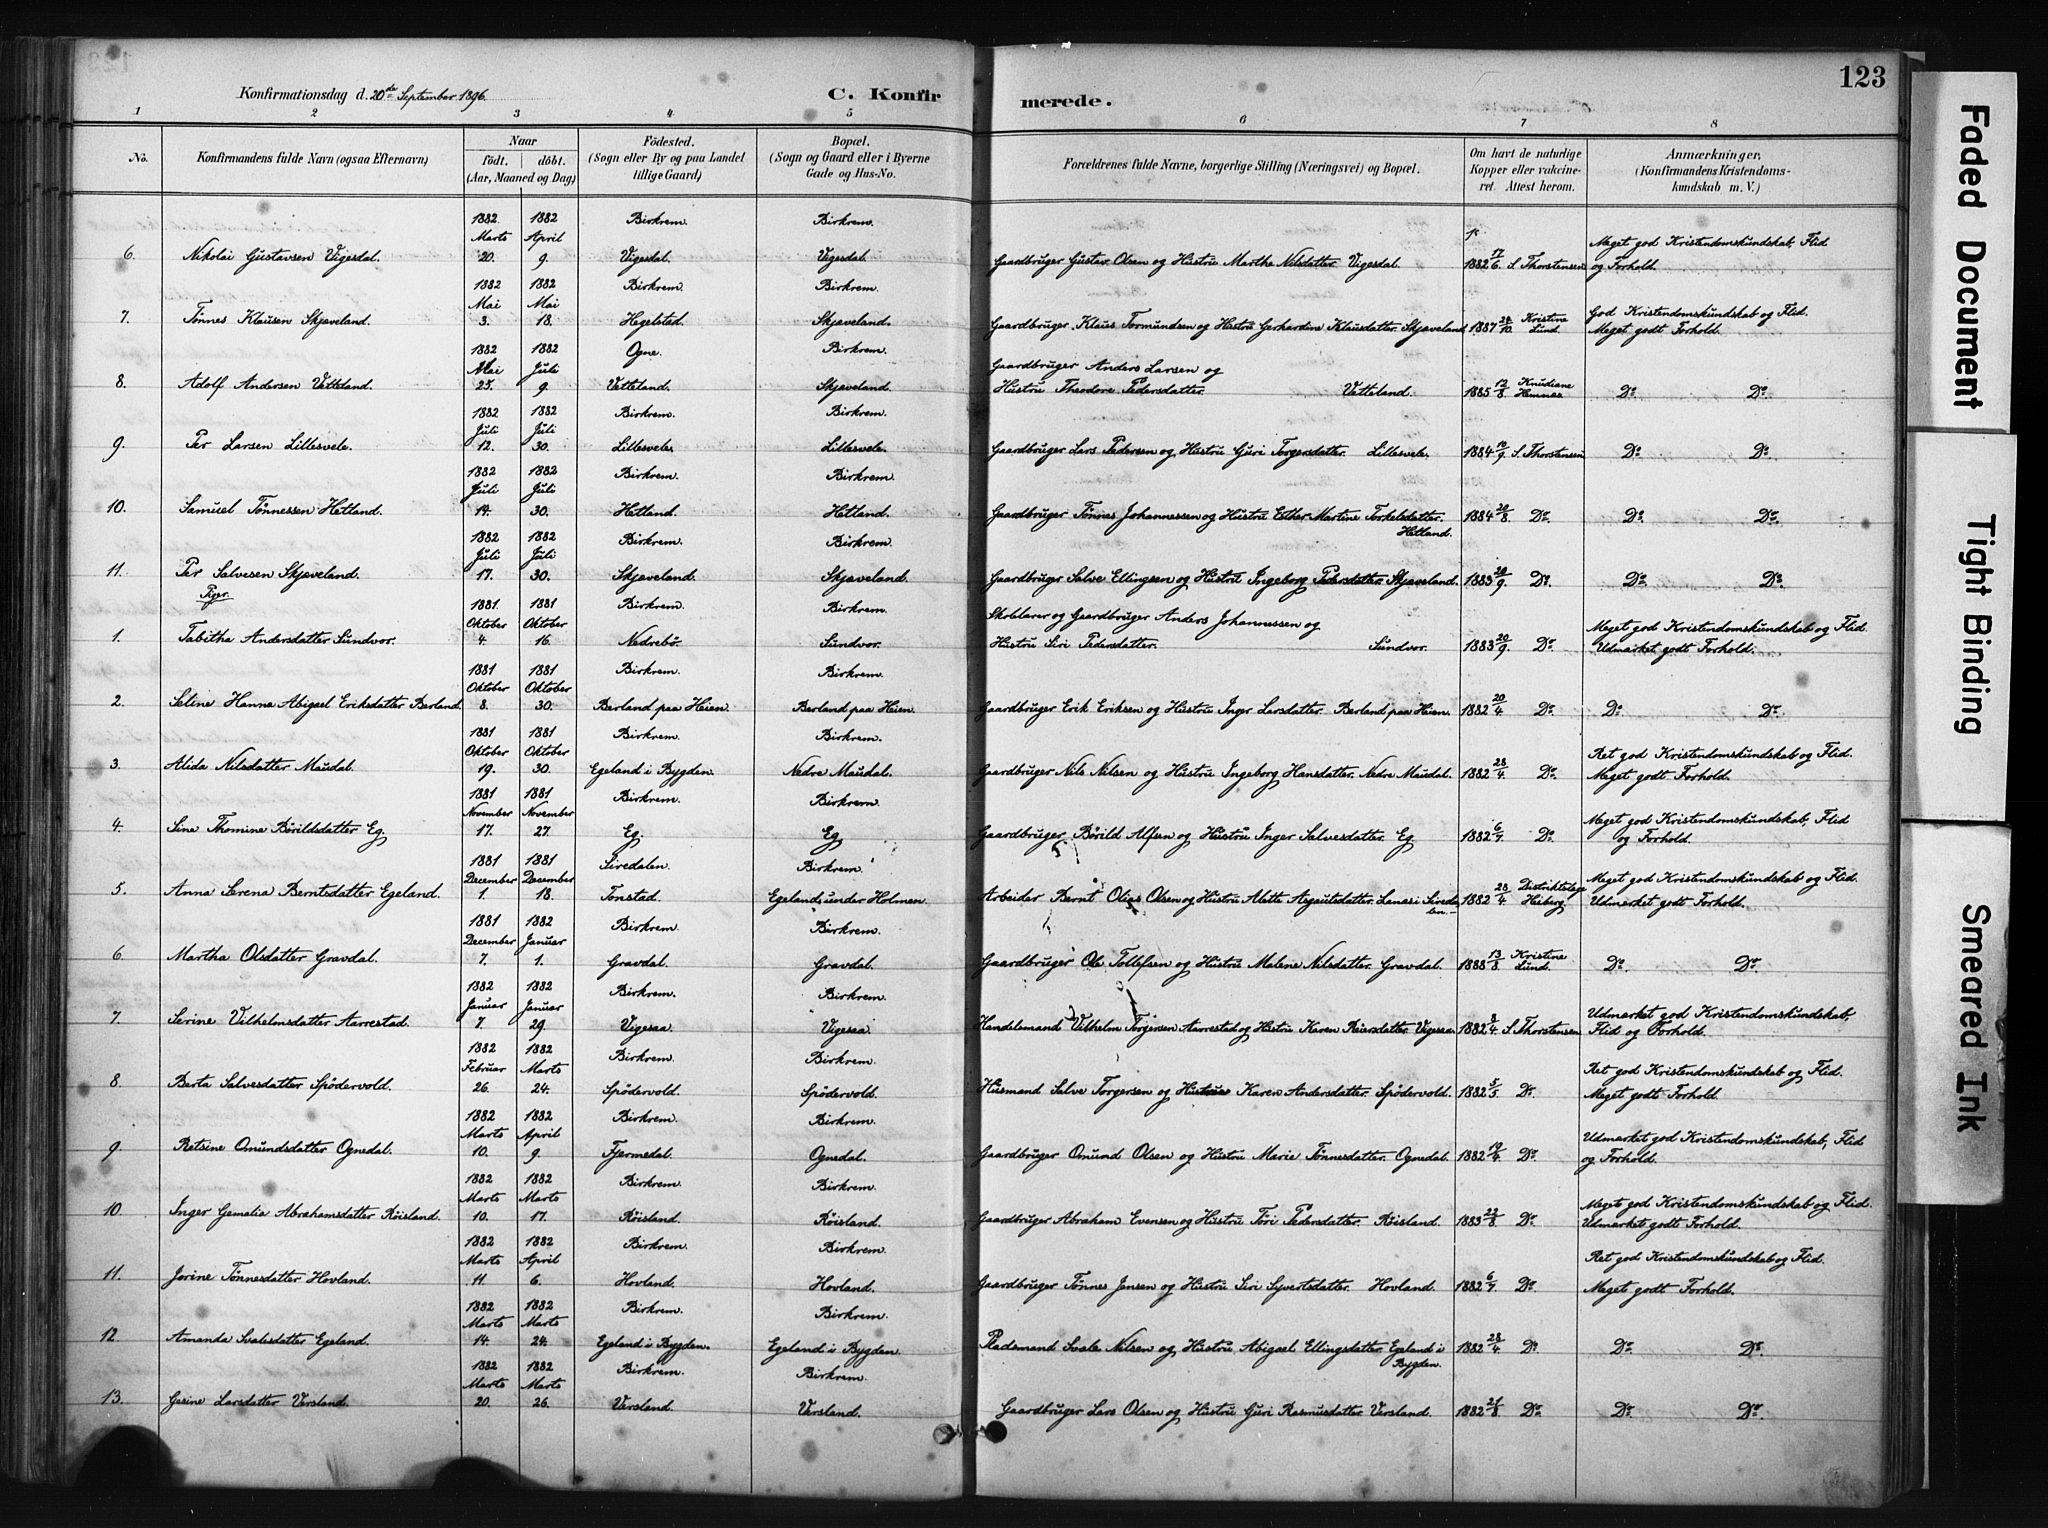 123
Konfirmationsdag d. 20de September 1896.
C. Konfirmerede.
1 2 3 4 5 6 7 8
No.
Konfirmandens fulde Navn (ogsaa Efternavn)
Naar
födt. döbt.
(Aar, Maaned og Dag)
Födested.
(Sogn eller By og paa Landet
tillige Gaard)
Bopæl.
(Sogn og Gaard eller i Byerne
Gade og Hus-No.
Forældrenes fulde Navne, borgerlige Stilling (Næringsvei) og Bopæl.
Om havt de naturlige
Kopper eller vakcine-
ret. Attest herom.
Anmærkninger,
(Konfirmandens Kristendoms-
kundskab m. V.)
1882. 1882 Birkrem. Birkrem.
Marts April
6. Nikolai Gustavsen Vigesdal. 20. 9. Vigesdal. Vigesdal. Gaardbruger Gustav Olsen og Hustru Marthe Nilsdatter Vigesdal. 1882 17/6. S. Thorstensen Meget god Kristendomskundskab, Flid
og Forhold.
1882 1882 Birkrem. Birkrem.
Mai Mai
7. Tønnes Klausen Skjæveland. 3. 18. Hegelstad. Skjæveland. Gaardbruger Klaus Tormundsen og Hustru Gerhardine Klausdatter. Skjæveland 1887 24/10 Kristine Lund. God Kristendomskundskab og Flid.
Meget godt Forhold.
1882 1882 Ogne. Birkrem.
Mai Juli
8. Adolf Andersen Vetteland. 25. 9. Vetteland. Skjæveland. Gaardbruger Anders Larsen og
Hustru Theodore Pedersdatter. Vetteland. 1885 12/8 Knudiane Hemnes Do Do.
1882 1882 Birkrem. Birkrem.
Juli Juli
9. Per Larsen Lillesvele. 12. 30. Lillesvele. Lillesvele. Gaardbruger Lars Pedersen og Hustru Guri Torgersdatter. Lillesvele. 1884 10/9. S. Thorstensen Do Do.
1882 1882 Birkrem. Birkrem.
Juli Juli
10. Samuel Tønnessen Hetland. 14. 30. Hetland. Hetland. Gaardbruger Tønnes Johannessen og Hustru Esther Martine Torkelsdatter.
Hetland. 1884 20/8. Do. Do. Do.
1882 1882 Birkrem. Birkrem.
Juli Juli
11. Per Salvesen Skjæveland. 17. 30. Skjæveland. Skjæveland. Gaardbruger Salve Ellingsen og Hustru Ingeborg Pedersdatter Skjæveland. 1883 20/9. Do. Do. Do.
Piger.
1881. 1881 Birkrem. Birkrem.
Oktober Oktober
1. Tabitha Andersdatter Sundvor. 4. 16. Nedrebø. Sundvor. Skolelærer og Gaardbruger Anders Johannessen og
Hustru Siri Pedersdatter. Sundvor. 1883 20/9 Do. Meget god Kristendomskundskab og Flid.
Udmærket godt Forhold.
1881 1881 Birkrem. Birkrem.
Oktober Oktober
2. Seline Hanna Abigael Eriksdatter Berland. 8. 30. Berland paa Heien. Berland paa Heien. Gaardbruger Erik Eriksen og Hustru Inger Larsdatter. Berland paa Heien. 1882 20/4. Do. Do. Do.
1881 1881 Birkrem. Birkrem.
Oktober Oktober
3. Alida Nilsdatter Maudal. 19. 30. Egeland i Bygden. Nedre Maudal. Gaardbruger Nils Nilsen og Hustru Ingeborg Hansdatter. Nedre Maudal. 1882 28/4. Do. Ret god Kristendomskundskab og Flid.
Meget godt Forhold.
1881 1881 Birkrem. Birkrem.
November November
4. Sine Thomine Børildsdatter Eg. 17. 27. Eg. Eg. Gaardbruger Børild Alfsen og Hustru Inger Salvesdatter. Eg 1882 6/7. Do. Meget god Kristendomskundskab, Flid
og Forhold.
1881 1881 Siredalen. Birkrem.
December December
5. Anna Serena Berntsdatter Egeland. 1. 18. Tonstad. Egeland under Holmen. Arbeider Bernt Olias Olsen og Hustru Alette Asgautsdatter. Lunas i Siredalen. 1882 28/4 Distriktslæge Heiberg. Meget god Kristendomskundskab og Flid.
Udmærket godt Forhold.
1881 1882 Birkrem. Birkrem.
December Januar
6. Martha Olsdatter Gravdal. 7. 1. Gravdal. Gravdal. Gaardbruger Ole Tollefsen og Hustru Malene Nilsdatter. Gravdal. 1888 13/8. Kristine Lund. Do. Do.
1882 1882 Birkrem. Birkrem.
Januar Januar
7. Serine Vilhelmsdatter Aarrestad. 7. 29. Vigesaa. Vigesaa. Handelsmand Vilhelm Torgersen Aarrestad og Hustru Karen Reiersdatter. Vigesaa. 1882 8/4. S. Thorstensen Udmærket god Kristendomskundskab,
Flid og Forhold.
1882 1882 Birkrem. Birkrem.
Februar Marts
8. Berta Salvesdatter Spødervold. 26. 24. Spødervold. Spødervold. Husmand Salve Torgersen og Hustru Karen Andersdatter. Spødervold. 1882 5/5. Do. Ret god Kristendomskundskab og Flid.
Meget godt Forhold.
1882 1882 Birkrem. Birkrem.
Marts April
9. Retsine Omundsdatter Ognedal. 10. 9. Fjermedal. Ognedal. Gaardbruger Omund Olsen og Hustru Marie Tønnesdatter. Ognedal. 1882 19/4. Do. Udmærket god Kristendomskundskab, Flid
og Forhold.
1882 1882 Birkrem. Birkrem.
Marts Marts
10. Inger Gemalia Abrahamsdatter Røisland. 10. 17. Røisland. Røisland. Gaardbruger Abraham Evensen og Hustru Tøri Pedersdatter. Røisland. 1883 22/8. Do. Meget god Kristendomskundskab og Flid.
Udmærket godt Forhold.
1882 1882 Birkrem. Birkrem.
Marts April
11. Jorine Tønnesdatter Hovland. 11. 6. Hovland. Hovland. Gaardbruger Tønnes Jensen og Hustru Siri Syvertsdatter. Hovland. 1882 6/7. Do. Ret god Kristendomskundskab og Flid.
Meget godt Forhold.
1882 1882 Birkrem. Birkrem.
Marts Marts
12 Amanda Svalesdatter Egeland. 14. 24. Egeland i Bygden. Egeland i Bygden. Pladsmand Svale Nilsen og Hustru Abigael Ellingsdatter. Egeland i
Bygden. 1882 28/4. Do. Do. Do.
1882 1882 Birkrem. Birkrem.
Marts Marts
13. Gesine Larsdatter Versland. 20. 26. Versland. Versland. Gaardbruger Lars Olsen og Hustru Guri Rasmusdatter Versland. 1882 21/8. Do. Do. Do.
Faded Document
Tight Binding
Smeared Ink